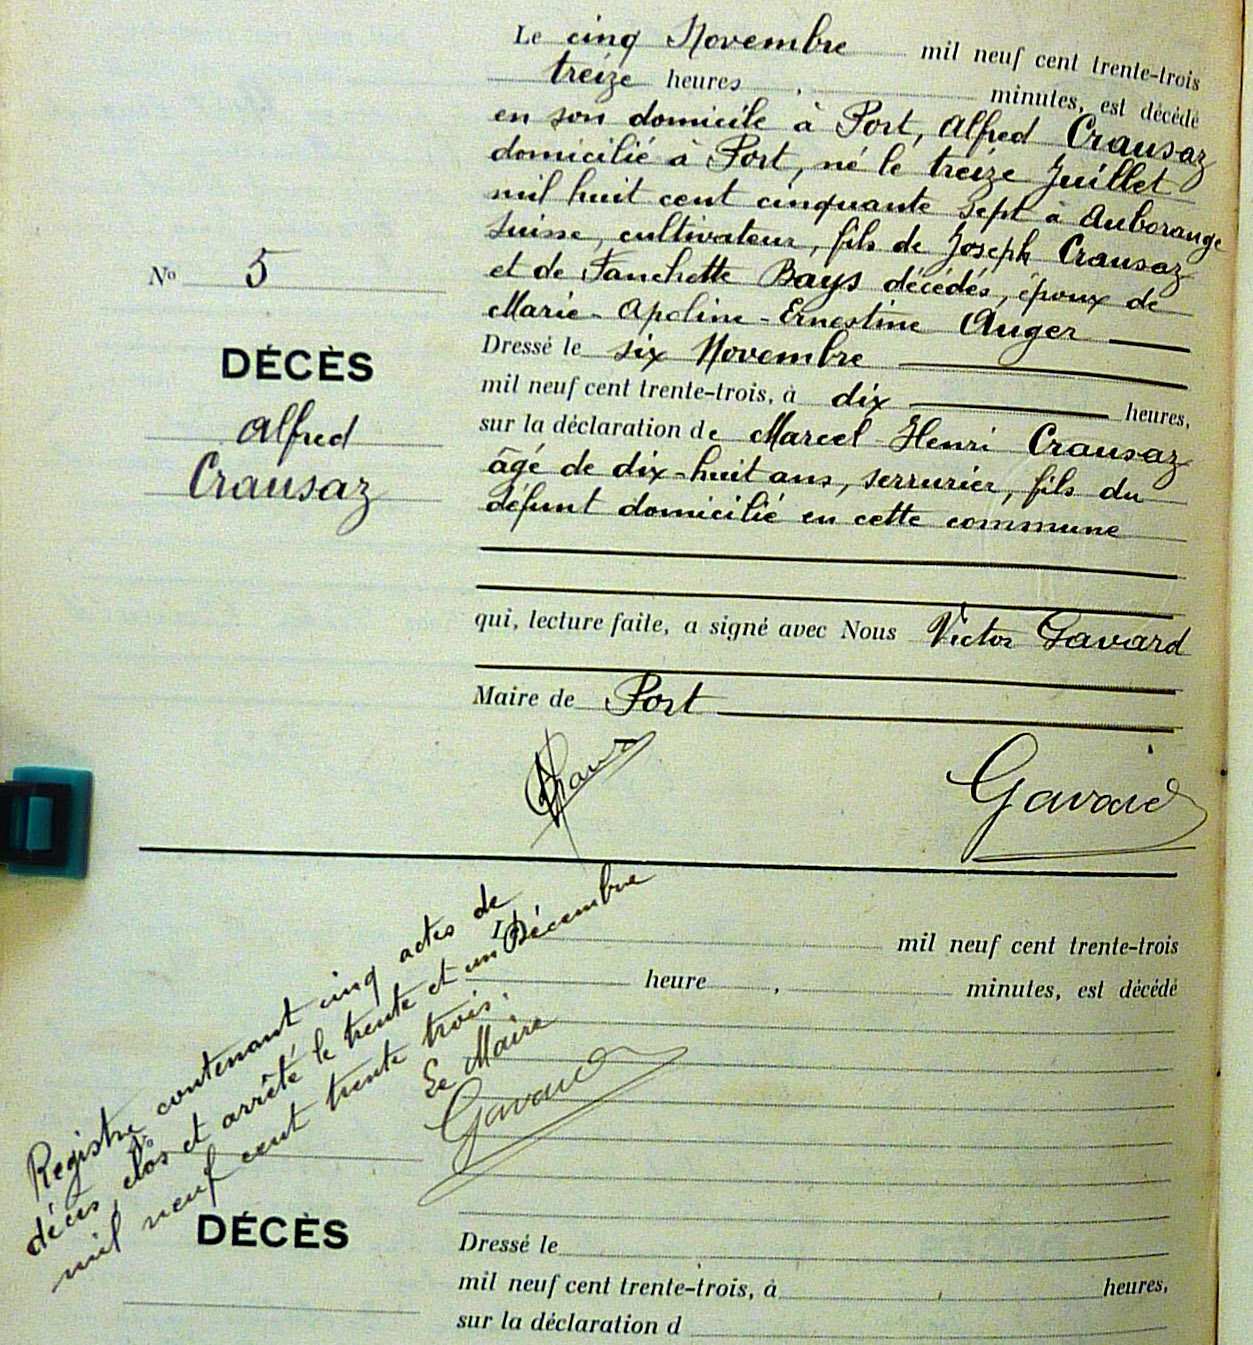 Le cinq Novembre mil neuf cent trente-trois
treize heures , minutes, est décédé
en son domicile à Port, Alfred Crausaz
domicilié à Port, né le treize Juillet
mil huit cent cinquante sept à Auborange
Suisse, cultivateur, fils de Joseph Crausaz
et de Fanchette Bays décédés, époux de
Marie-Apoline-Ernestine Auger
Dressé le six Novembre
mil neuf cent trente-trois, à dix heures,
sur la déclaration de Marcel Henri Crausaz
âgé de dix-huit ans, serrurier, fils du
défunt domicilié en cette commune
qui, lecture faite, a signé avec Nous Victor Gavard
Maire de Port
Gavard
No 5
DÉCÈS
Alfred
Crausaz
Registre contenant cinq actes de
décès, clos et arrêté le trente et un Décembre
mil neuf cent trente trois.
Le Maire
Gavard
L
mil neuf cent trente-trois
heure , minutes, est décédé
No
DÉCÈS
Dressé le
mil neuf cent trente-trois, à heures,
sur la déclaration d